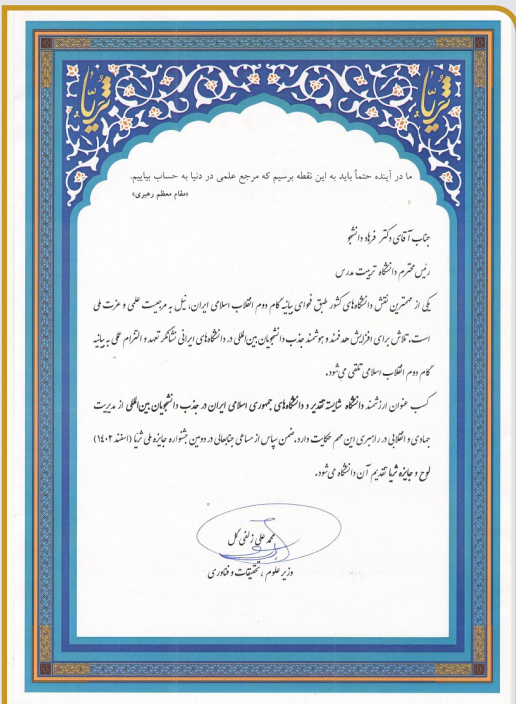 ثریا
ثریا
ما در آینده حتماً باید به این نقطه برسیم که مرجع علمی در دنیا به حساب بیاییم.
«مقام معظم رهبری»
جناب آقای دکتر فرهاد دانشجو
رئیس محترم دانشگاه تربیت مدرس
یکی از مهمترین نقش دانشگاه‌های کشور طبق فحوای بیانیه گام دوم انقلاب اسلامی ایران، نیل به مرجعیت علمی و عزت ملی
است، تلاش برای افزایش هدفمند و هوشمند جذب دانشجویان بین‌المللی در دانشگاه‌های ایرانی نشانگر تعهد و التزام عملی به بیانیه
گام دوم انقلاب اسلامی تلقی می‌شود.
کسب عنوان ارزشمند دانشگاه شایسته تقدیر و دانشگاه‌های جمهوری اسلامی ایران در جذب دانشجویان بین‌المللی از مدیریت
جهادی و انقلابی در راهبری این مهم حکایت دارد. ضمن سپاس از مساعی جنابعالی در دومین جشنواره جایزه ملی ثریا (اسفند ۱۴۰۲)
لوح و جایزه ثریا تقدیم آن دانشگاه می‌شود.
محمد علی زلفی گل
وزیر علوم، تحقیقات و فناوری